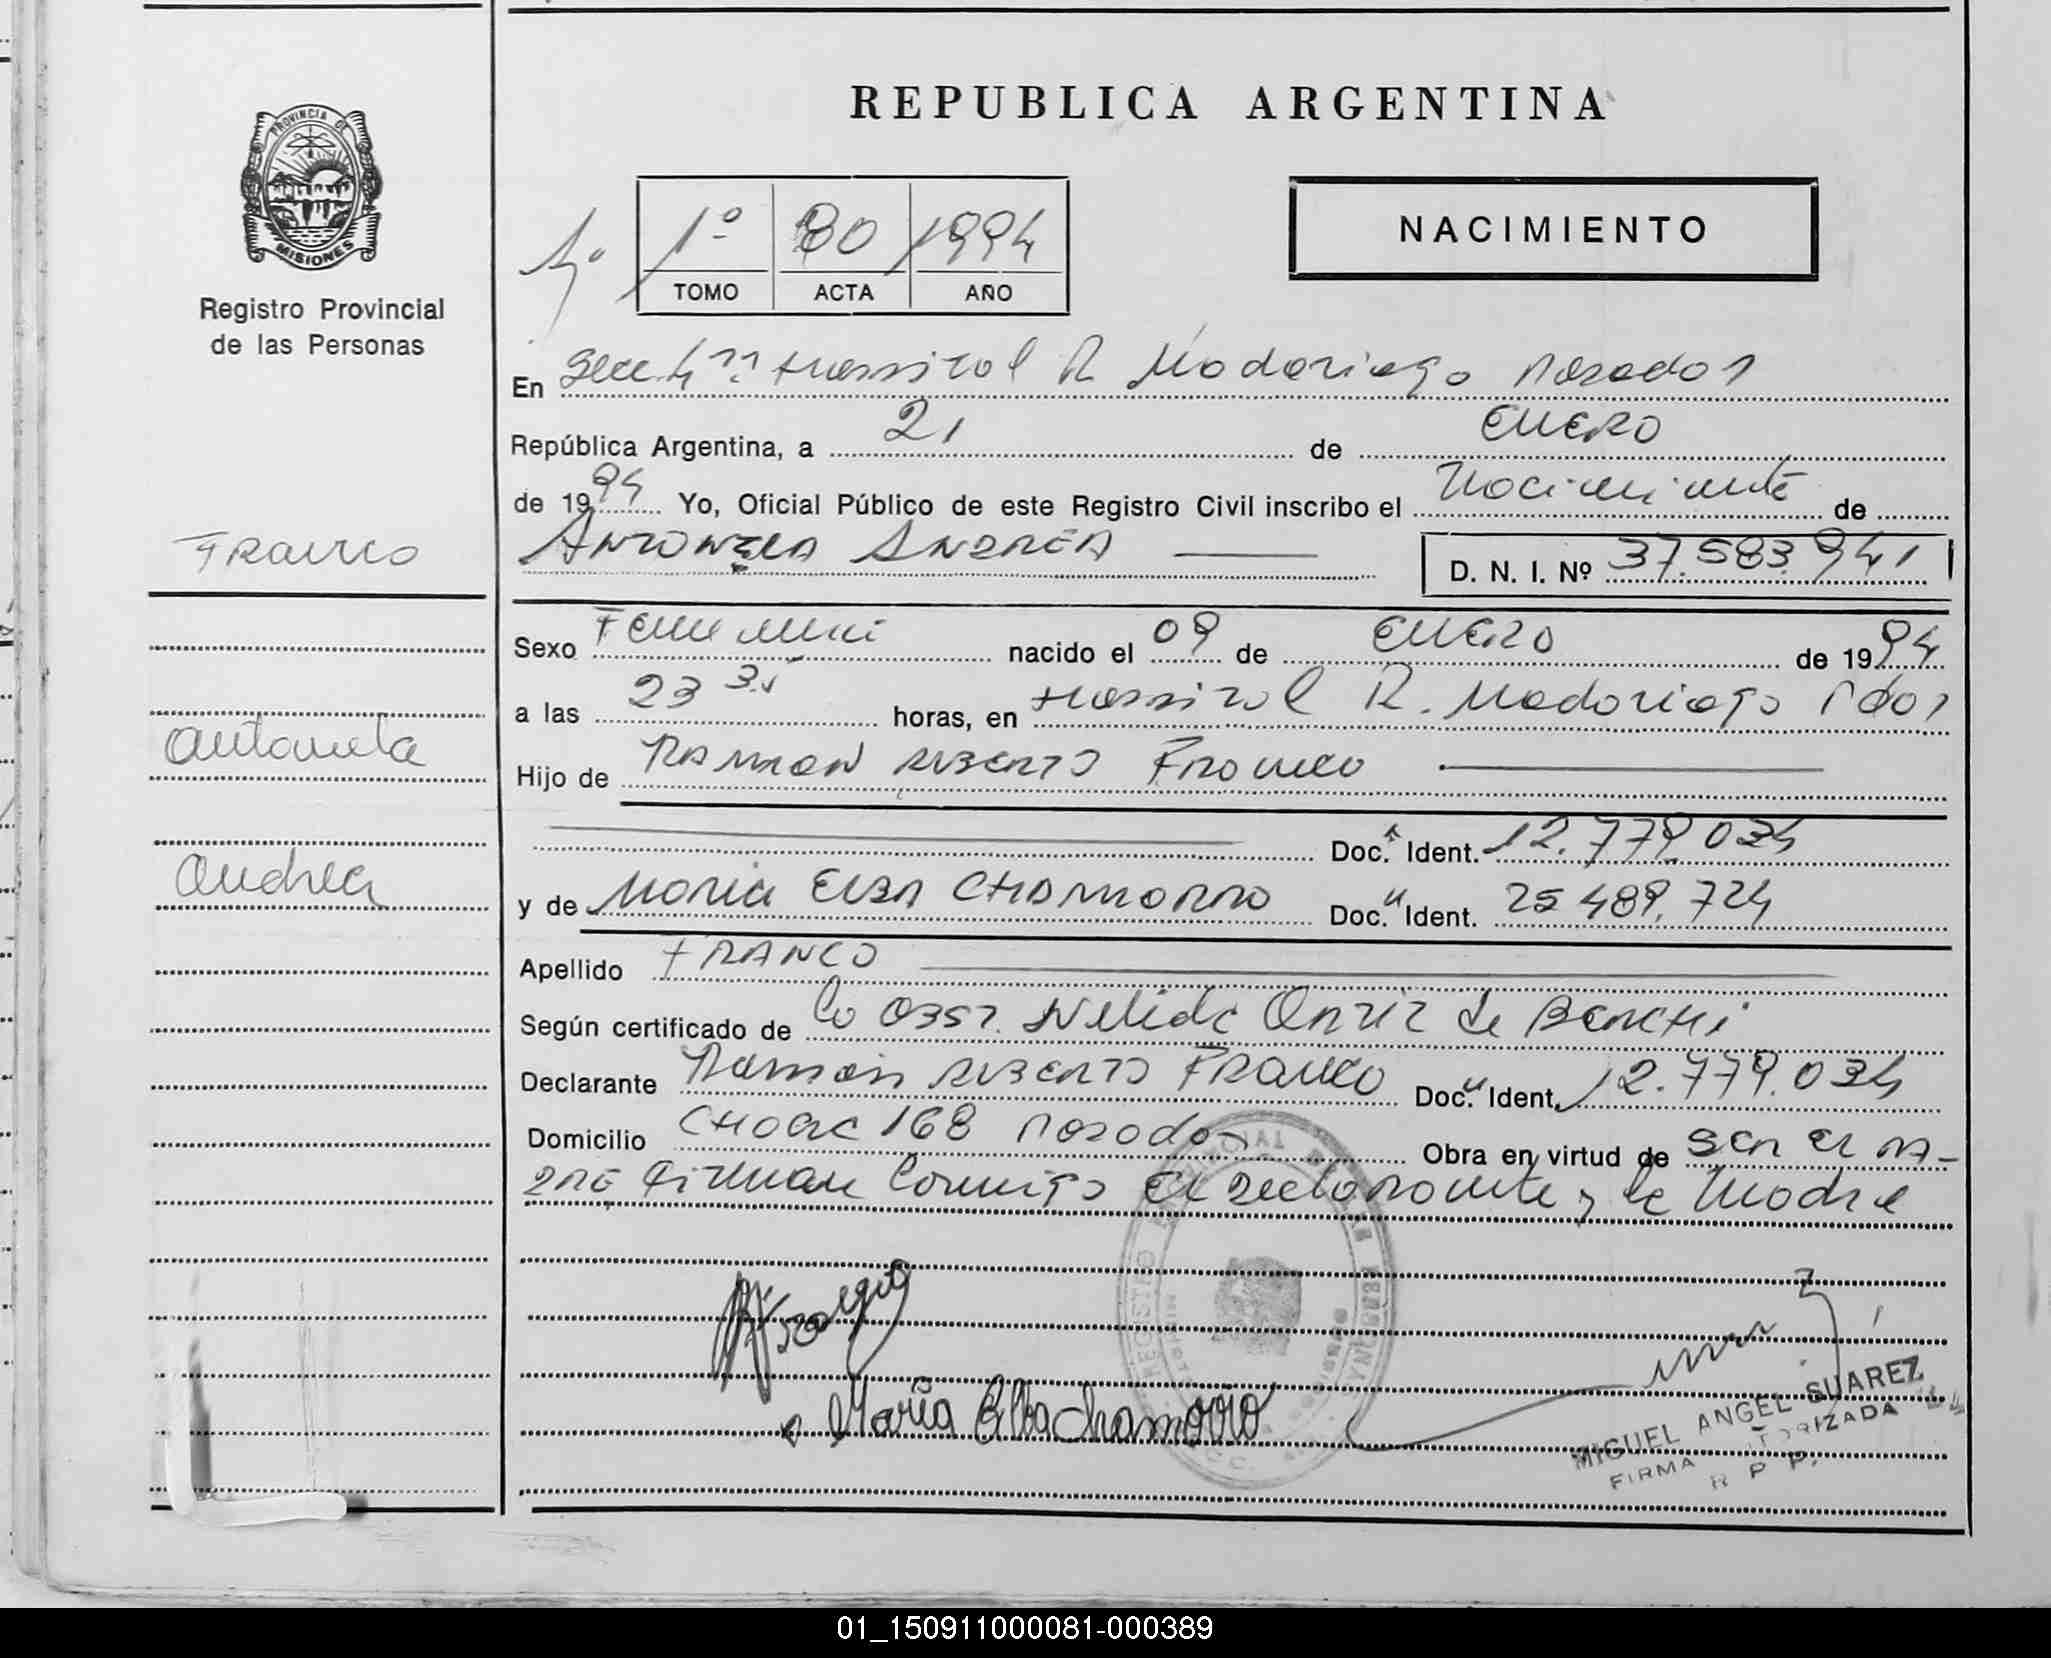 REPUBLICA ARGENTINA
PROVINCIA DE
MISIONES
Registro Provincial
de las Personas
1º 80 1994
TOMO ACTA AÑO
NACIMIENTO
En Secc. Hospital R Madariaga Posadas
República Argentina, a 21 de ENERO
de 1994 Yo, Oficial Público de este Registro Civil inscribo el Nacimiento de
Franco
ANTONELA ANDREA D. N. I. Nº 37.583.941
Sexo Femenino nacido el 09 de ENERO de 1994
a las 23 horas, en Hospital R. Madariaga Pdas
Antonela
Hijo de RAMON ALBERTO FRANCO
Doc. Ident. 12.779.034
Andrea
y de Maria ELBA CHAMORRO Doc. Ident. 25.489.724
Apellido FRANCO
Según certificado de la OBST. Nelida Ortiz de BENCHI
Declarante Ramon ALBERTO FRANCO Doc. Ident. 12.779.034
Domicilio 168 Posadas Obra en virtud de SER EL PA-
DRE Firman Conmigo El Declarante y la Madre
María Elba Chamorro
MIGUEL ANGEL SUAREZ
FIRMA AUTORIZADA
R P P.
01_150911000081-000389